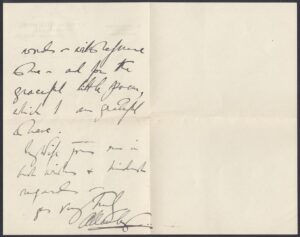 words
and for the
graceful little poem,
which I am grateful
to have.
My Wife joins me in
both wishes & kindest
regards
yrs Very Truly